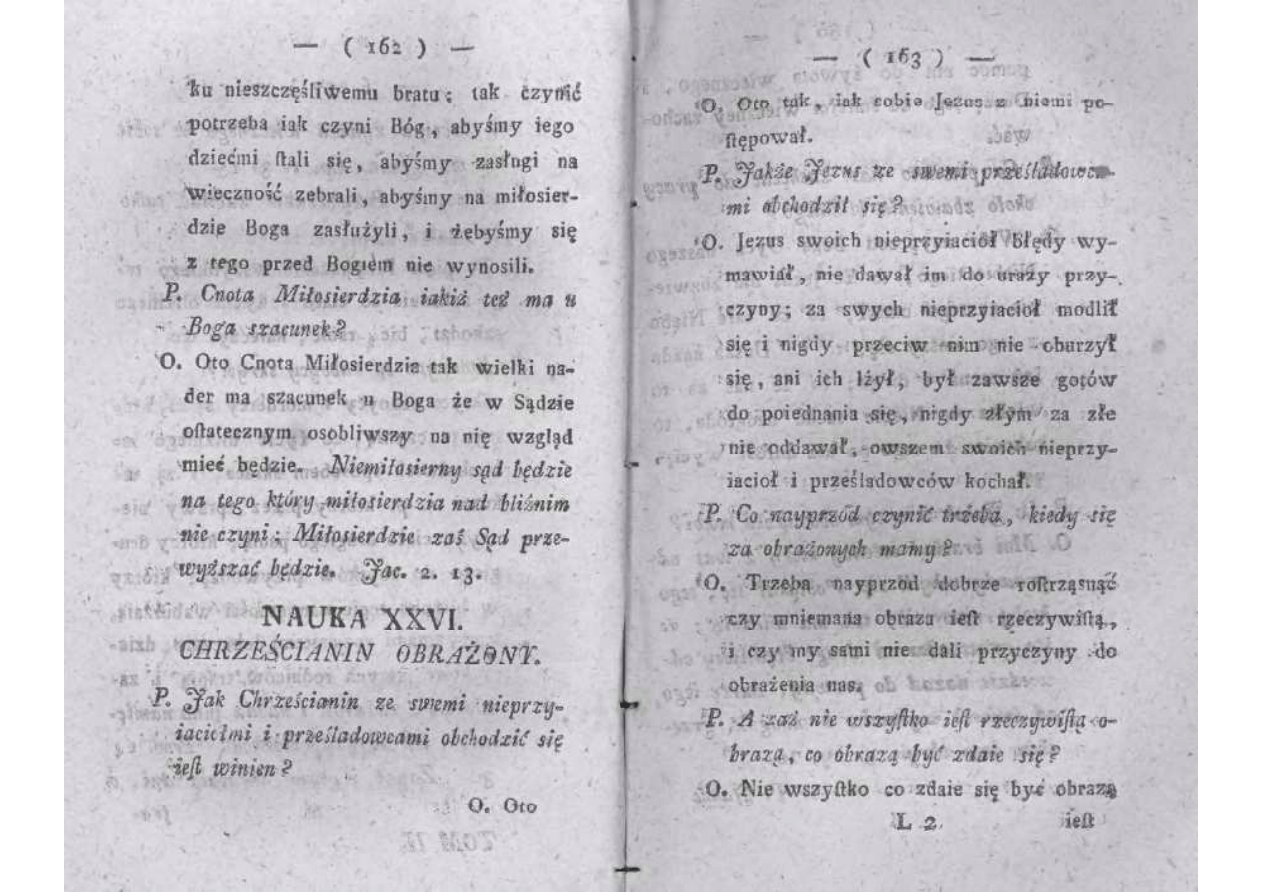 — ( 162 ) —
ku nieszczęśliwemu bratu; tak czynić
potrzeba iak czyni Bóg, abyśmy iego
dziećmi ſtali się, abyśmy zasługi na
wieczność zebrali, abyśmy na miłosier-
dzie Boga zasłużyli, i żebyśmy się
z tego przed Bogiem nie wynosili.
P. Cnota Miłosierdzia iakiż też ma u
Boga szacunek?
O. Oto Cnota Miłosierdzia tak wielki na-
der ma szacunek u Boga że w Sądzie
oſtatecznym osobliwszy na nię wzgląd
mieć będzie. Niemiłosierny sąd będzie
na tego który miłosierdzia nad bliźnim
nie czyni; Miłosierdzie zaś Sąd prze-
wyższać będzie. Jac. 2. 13.
NAUKA XXVI.
CHRZEŚCIANIN OBRAŻONY.
P. Jak Chrześcianin ze swemi nieprzy-
iaciołmi i prześladowcami obchodzić się
ieſt winien?
O. Oto
— ( 163 ) —
O. Oto tak, iak sobie Jezus z niemi po-
ſtępował.
P. Jakże Jezus ze swemi prześladowca-
mi obchodził się?
O. Jezus swoich nieprzyiaciół błędy wy-
mawiał, nie dawał im do urazy przy-
czyny; za swych nieprzyiaciół modlił
się i nigdy przeciw nim nie oburzył
się, ani ich lżył, był zawsze gotów
do poiednania się, nigdy złym za złe
nie oddawał, owszem swoich nieprzy-
iacioł i prześladowców kochał.
P. Co nayprzód czynić trzeba, kiedy się
za obrażonych mamy?
O. Trzeba nayprzód dobrze roſtrząsnąć
czy mniemana obraza ieſt rzeczywiſtą,
i czy my sami nie dali przyczyny do
obrażenia nas.
P. A zaż nie wszyſtko ieſt rzeczywiſtą o-
brazą, co obrazą być zdaie się?
O. Nie wszyſtko co zdaie się być obrazą
L 2 ieſt